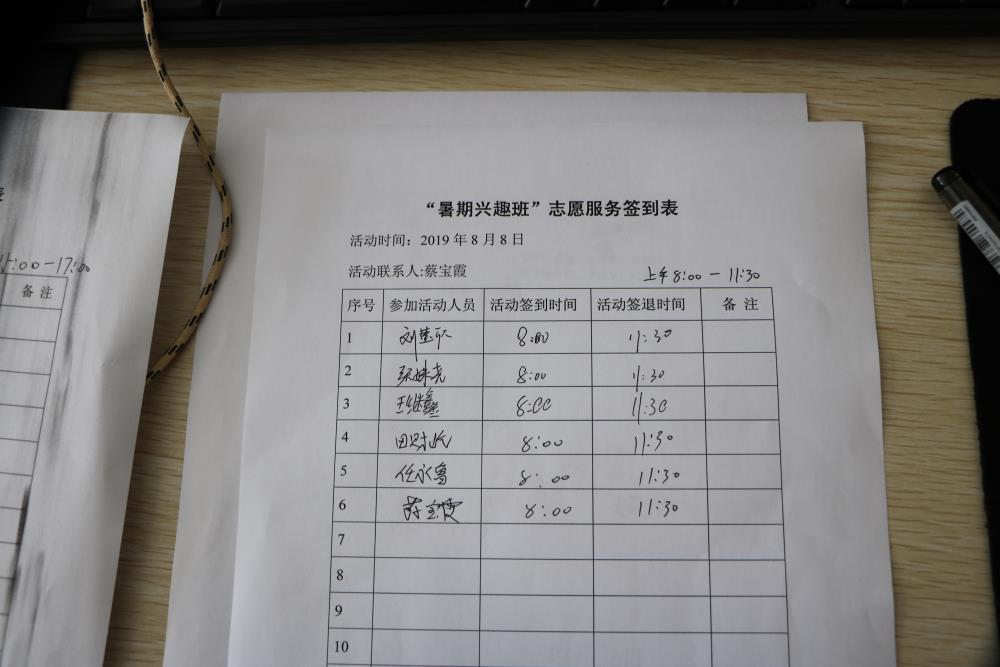 15:00-17:00
备注
“暑期兴趣班”志愿服务签到表
活动时间：2019年8月8日
活动联系人:蔡宝霞
上午8:00-11:30
序号 参加活动人员 活动签到时间 活动签退时间 备注
1 8:00 11:30
2 8:00 11:30
3 王继鑫 8:00 11:30
4 8:00 11:30
5 任永鲁 8:00 11:30
6 8:00 11:30
7
8
9
10